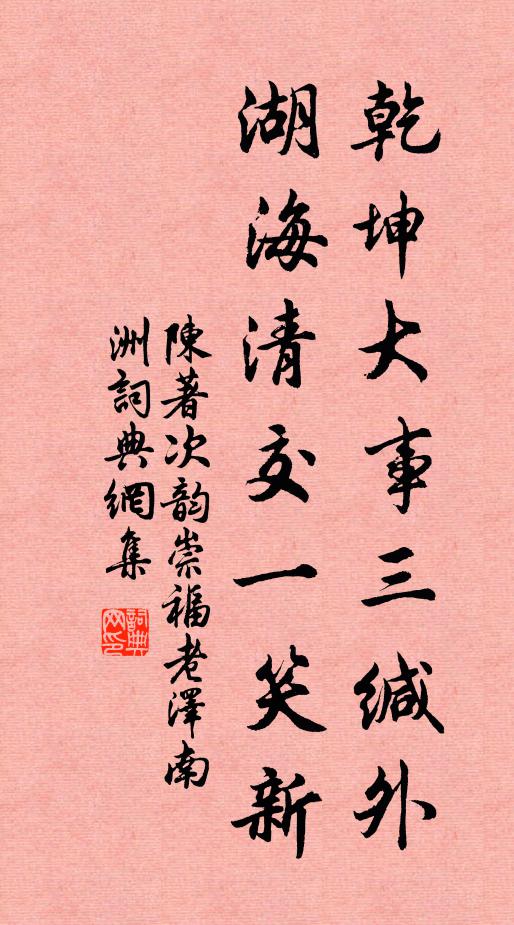 乾坤大事三緘外
湖海清交一笑新
陳著次韵崇福老澤南
洲詞典網集
詞典
网印